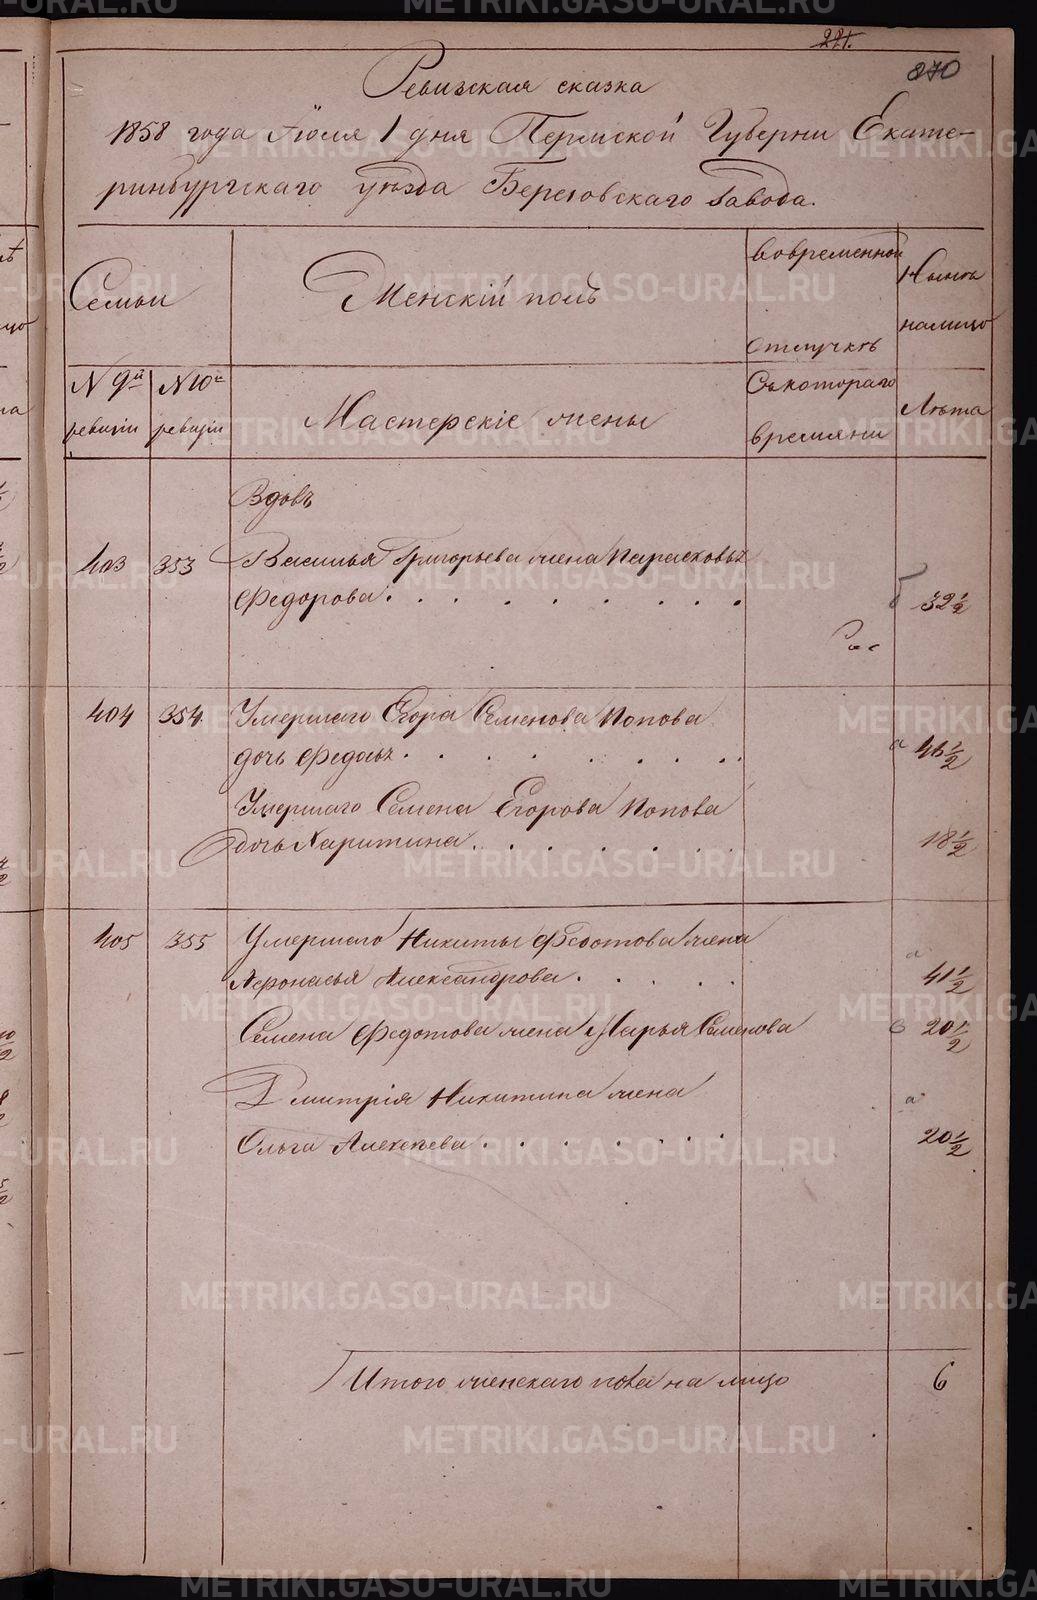 281.
870
Ревизская сказка
1858 года Іюля 1 дня Пермской Губерни Екате-
ринбургскаго уѣзда Березовскаго завода.
Семьи
Женскій полъ
Вовременной
отлучкѣ
Нынѣ
налицо
N 9й
ревизіи
N 10й
ревизіи
Мастерскіе жены
Скотораго
времяни
Лѣта
Вдовъ
403 353 Василья Григорьева жена Парасковья
Федорова 32½
404 354. Умершаго Егора Семенова Попова
дочь Федосья 46½
Умершаго Семена Егорова Попова
дочь Харитина 18½
405 355 Умершаго Никиты Федотова жена
Афонасья Александрова 41½
Семена Федотова жена Марья Семенова 20½
Дмитрія Никитина жена
Ольга Алексѣева 20½
Итого женскаго пола на лицо 6
METRIKI.GASO-URAL.RU